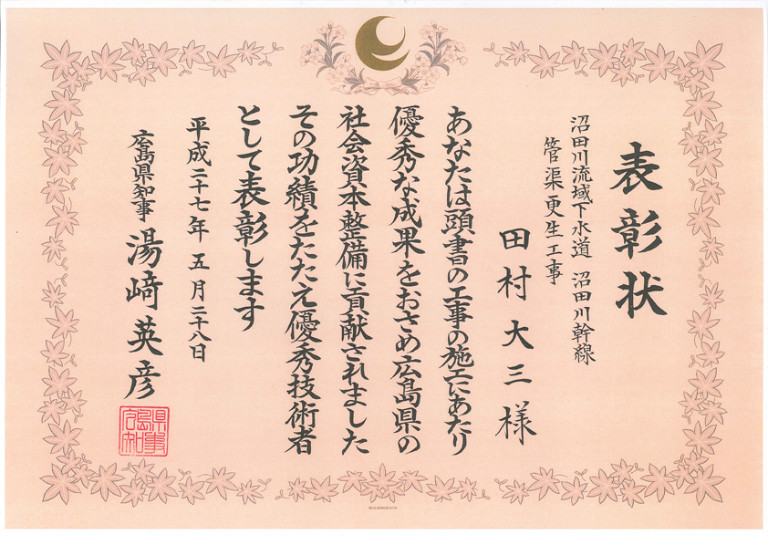 表彰状
沼田川流域下水道 沼田川幹線
管渠更生工事
田村大三様
あなたは頭書の工事の施工にあたり
優秀な成果をおさめ広島県の
社会資本整備に貢献されました
その功績をたたえ優秀技術者
として表彰します
平成二十七年五月二十八日
広島県知事 湯﨑英彦
広島県知事